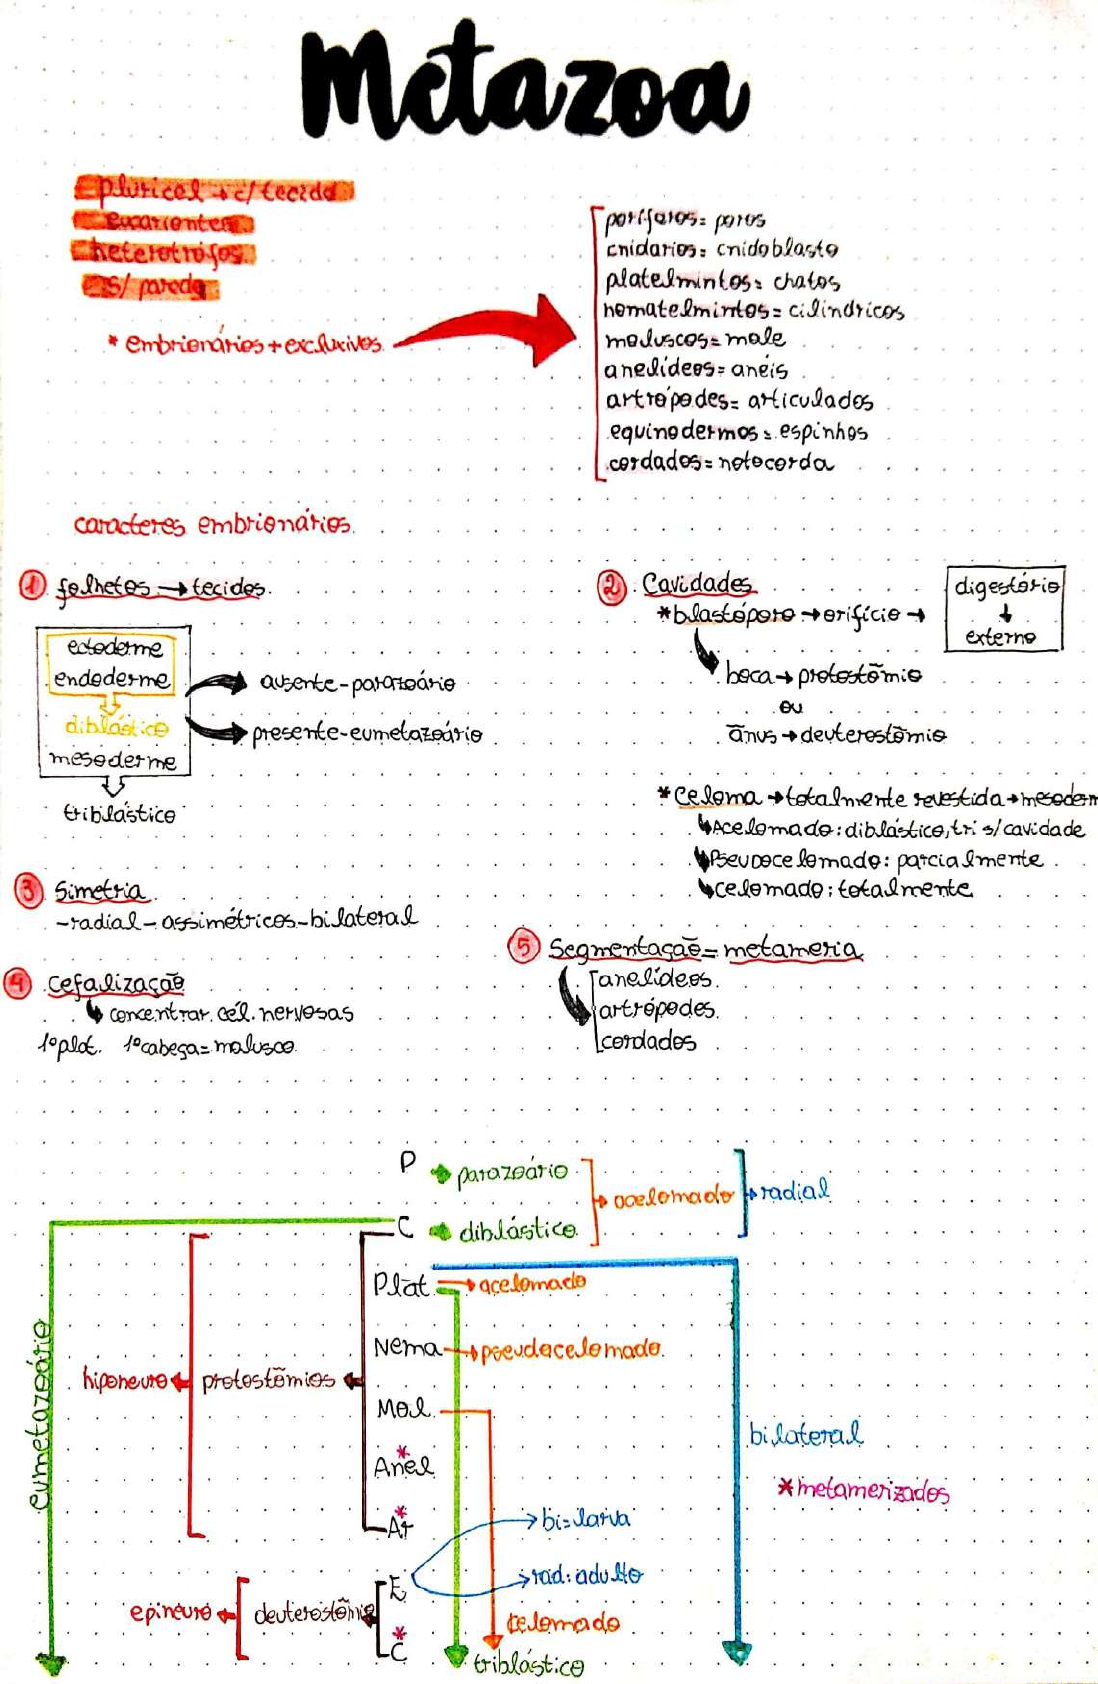 Metazoa
plurical → c/ tecido
eucariontes
heterotrófos
s/ parede
* embrionários + exclusivos
poríferos = poros
cnidários = cnidoblasto
platelmintos = chatos
nematelmintos = cilíndricos
moluscos = mole
anelídeos = anéis
artrópodes = articulados
equinodermos = espinhos
cordados = notocorda
caracteres embrionários
1 folhetos → tecidos
ectoderme
endoderme
diblástico
mesoderme
triblástico
ausente - parazoário
presente - eumetazoário
2 Cavidades
*blastóporo → orifício →
digestório
↓
externo
boca → protostômio
ou
ãnus → deuterostômio
*Celoma → totalmente revestida → mesoderm
↳ Acelomado: diblástico, tri s/ cavidade
↳ Pseudocelomado: parcialmente
↳ celomado: totalmente
3 Simetria
- radial - assimétricos - bilateral
4 Cefalização
↳ concentrar. cél. nervosas
1º plat. 1º cabeça = molusco
5 Segmentação = metameria
anelídeos
artrópodes
cordados
P → parazoário
acelomado → radial
C → diblástico
Plat → acelomado
Nema → pseudocelomado
hiponeuro ← protostômios
Mol
eumetazoário
bilateral
* Anel
* metamerizados
* Ar
bi = larva
E
rad: adulto
epineuro ← deuterostômio
celomado
* C
triblástico